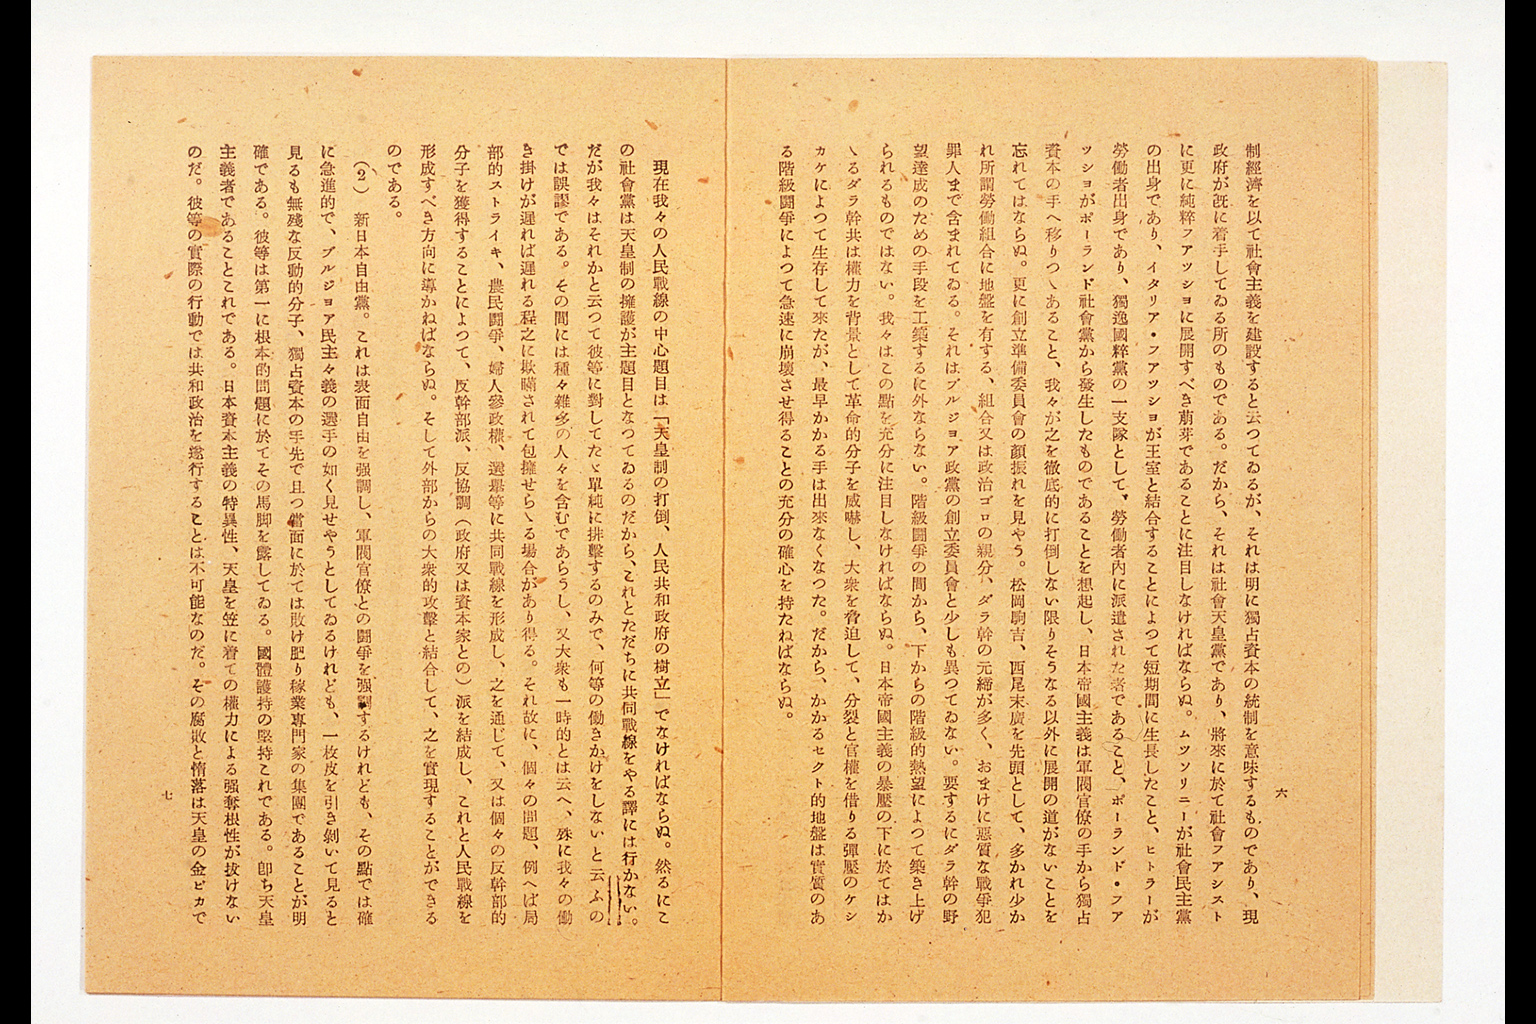 六
制經濟を以て社會主義を建設すると云つてゐるが、それは明に獨占資本の統制を意味するものであり、現
政府が旣に着手してゐる所のものである。だから、それは社會天皇黨であり、將來に於て社會フアシスト
に更に純粹フアツシヨに展開すべき萠芽であることに注目しなければならぬ。ムツソリニーが社會民主黨
の出身であり、イタリア・フアツシヨが王室と結合することによつて短期間に生長したこと、ヒトラーが
勞働者出身であり、獨逸國粹黨の一支隊として、勞働者內に派遣された者であること、ポーランド・フア
ツシヨがポーランド社會黨から發生したものであることを想起し、日本帝國主義は軍閥官僚の手から獨占
資本の手へ移りつゝあること、我々が之を徹底的に打倒しない限りそうなる以外に展開の道がないことを
忘れてはならぬ。更に創立準備委員會の顏振れを見やう。松岡駒吉、西尾末廣を先頭として、多かれ少か
れ所謂勞働組合に地盤を有する、組合又は政治ゴロの親分、ダラ幹の元締が多く、おまけに惡質な戰爭犯
罪人まで含まれてゐる。それはブルジヨア政黨の創立委員會と少しも異つてゐない。要するにダラ幹の野
望達成のための手段を工築するに外ならない。階級鬪爭の間から、下からの階級的熱望によつて築き上げ
られるものではない。我々はこの點を充分に注目しなければならぬ。日本帝國主義の暴壓の下に於てはか
ゝるダラ幹共は權力を背景として革命的分子を威嚇し、大衆を脅迫して、分裂と官權を借りる彈壓のケシ
カケによつて生存して來たが、最早かかる手は出來なくなつた。だから、かかるセクト的地盤は實質のあ
る階級鬪爭によつて急速に崩壞させ得ることの充分の確心を持たねばならぬ。
現在我々の人民戰線の中心題目は「天皇制の打倒、人民共和政府の樹立」でなければならぬ。然るにこ
の社會黨は天皇制の擁護が主題目となつてゐるのだから、これとただちに共同戰線をやる譯には行かない。
だが我々はそれかと云つて彼等に對してたゞ單純に排擊するのみで、何等の働きかけをしないと云ふの
では誤謬である。その間には種々雜多の人々を含むであらうし、又大衆も一時的とは云へ、殊に我々の働
き掛けが遲れば遲れる程之に欺瞞されて包擁せらるゝ場合があり得る。それ故に、個々の問題、例へば局
部的ストライキ、農民鬪爭、婦人參政權、選擧等に共同戰線を形成し、之を通じて、又は個々の反幹部的
分子を獲得することによつて、反幹部派、反協調（政府又は資本家との）派を結成し、これと人民戰線を
形成すべき方向に導かねばならぬ。そして外部からの大衆的攻擊と結合して、之を實現することができる
のである。
（2）　新日本自由黨。これは表面自由を强調し、軍閥官僚との鬪爭を强調するけれども、その點では確
に急進的で、ブルジヨア民主々義の選手の如く見せやうとしてゐるけれども、一枚皮を引き剝いて見ると
見るも無殘な反動的分子、獨占資本の手先で且つ當面に於ては敗け肥り稼業專門家の集團であることが明
確である。彼等は第一に根本的問題に於てその馬脚を露してゐる。國體護持の堅持これである。卽ち天皇
主義者であることこれである。日本資本主義の特異性、天皇を笠に着ての權力による强奪根性が拔けない
のだ。彼等の實際の行動では共和政治を遂行することは不可能なのだ。その腐敗と惰落は天皇の金ピカで
七